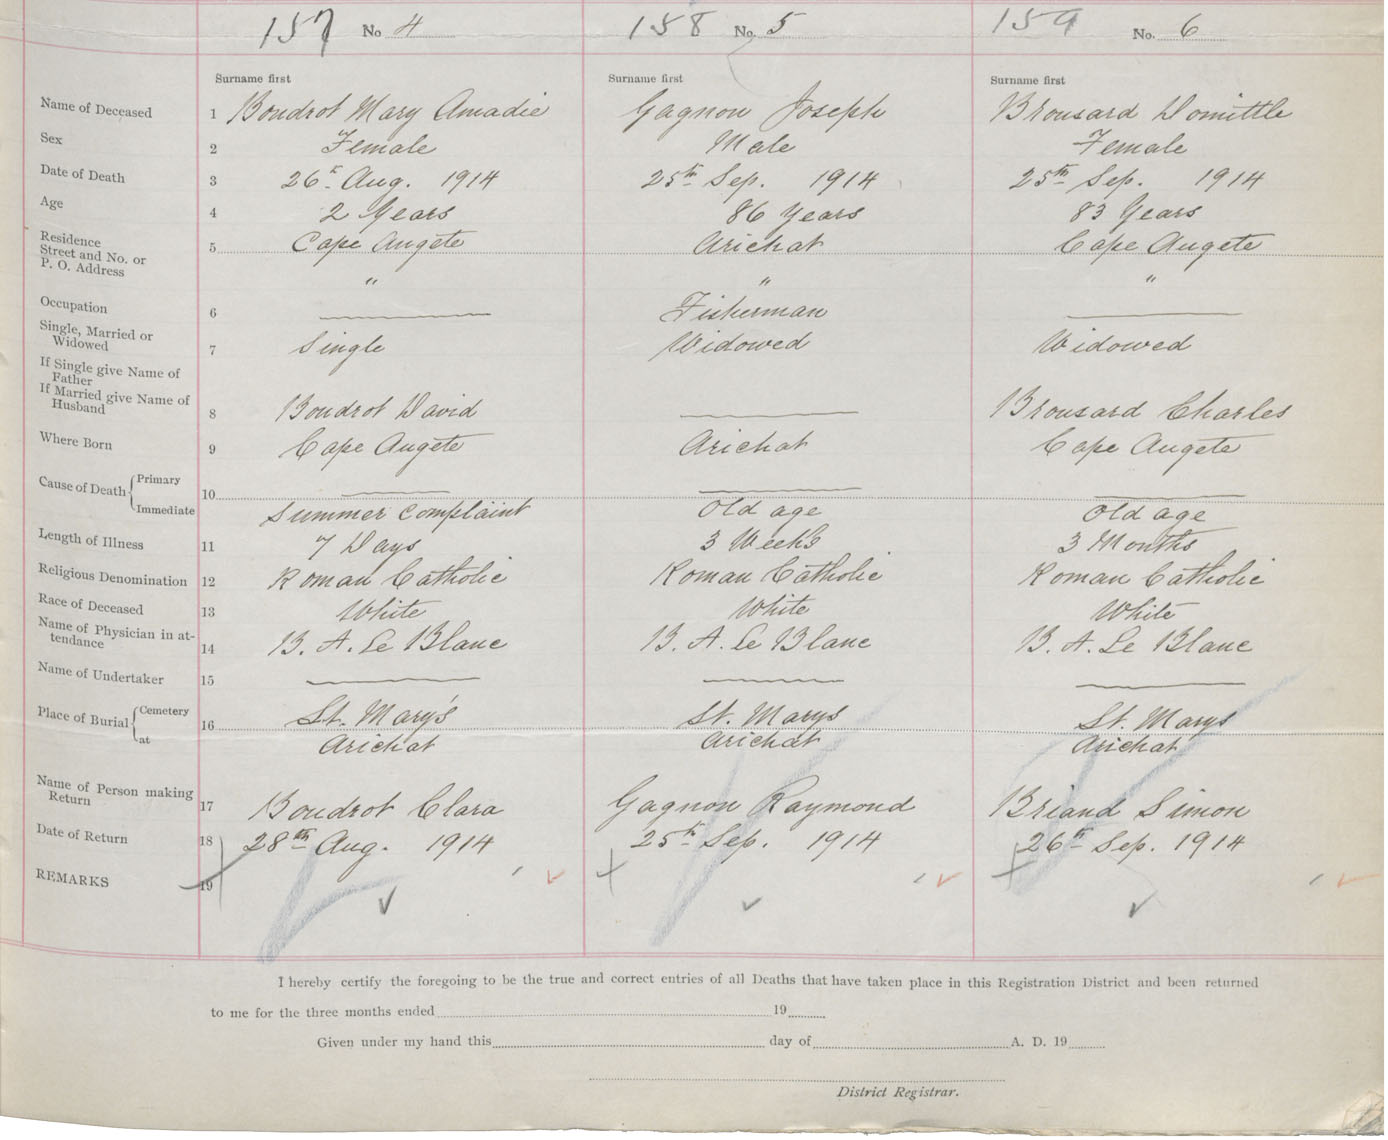 157 No 4 158 No. 5 159 No. 6
Surname first Surname first Surname first
Name of Deceased 1 Boudrot Mary Amadie Gagnon Joseph Brousard Domittle
Sex 2 Female Male Female
Date of Death 3 26th Aug. 1914 25th Sep. 1914 25th Sep. 1914
Age 4 2 Years 86 Years 83 Years
Residence
Street and No. or 5 Cape Augete Arichat Cape Augete
P. O. Address " " "
Occupation 6 Fisherman
Single, Married or
Widowed 7 Single Widowed Widowed
If Single give Name of
Father
If Married give Name of
Husband 8 Boudrot David Brousard Charles
Where Born 9 Cape Augete Arichat Cape Augete
Cause of Death Primary 10
Immediate Summer Complaint Old age Old age
Length of Illness 11 7 Days 3 Weeks 3 Months
Religious Denomination 12 Roman Catholic Roman Catholic Roman Catholic
Race of Deceased 13 White White White
Name of Physician in at-
tendance 14 B. A. Le Blanc B. A. Le Blanc B. A. Le Blanc
Name of Undertaker 15
Place of Burial Cemetery 16 St. Mary's St. Marys St. Marys
at Arichat Arichat Arichat
Name of Person making
Return 17 Boudrot Clara Gagnon Raymond Briand Simon
Date of Return 18 28th Aug. 1914 25th Sep. 1914 26th Sep. 1914
REMARKS 19
I hereby certify the foregoing to be the true and correct entries of all Deaths that have taken place in this Registration District and been returned
to me for the three months ended 19
Given under my hand this day of A. D. 19
District Registrar.